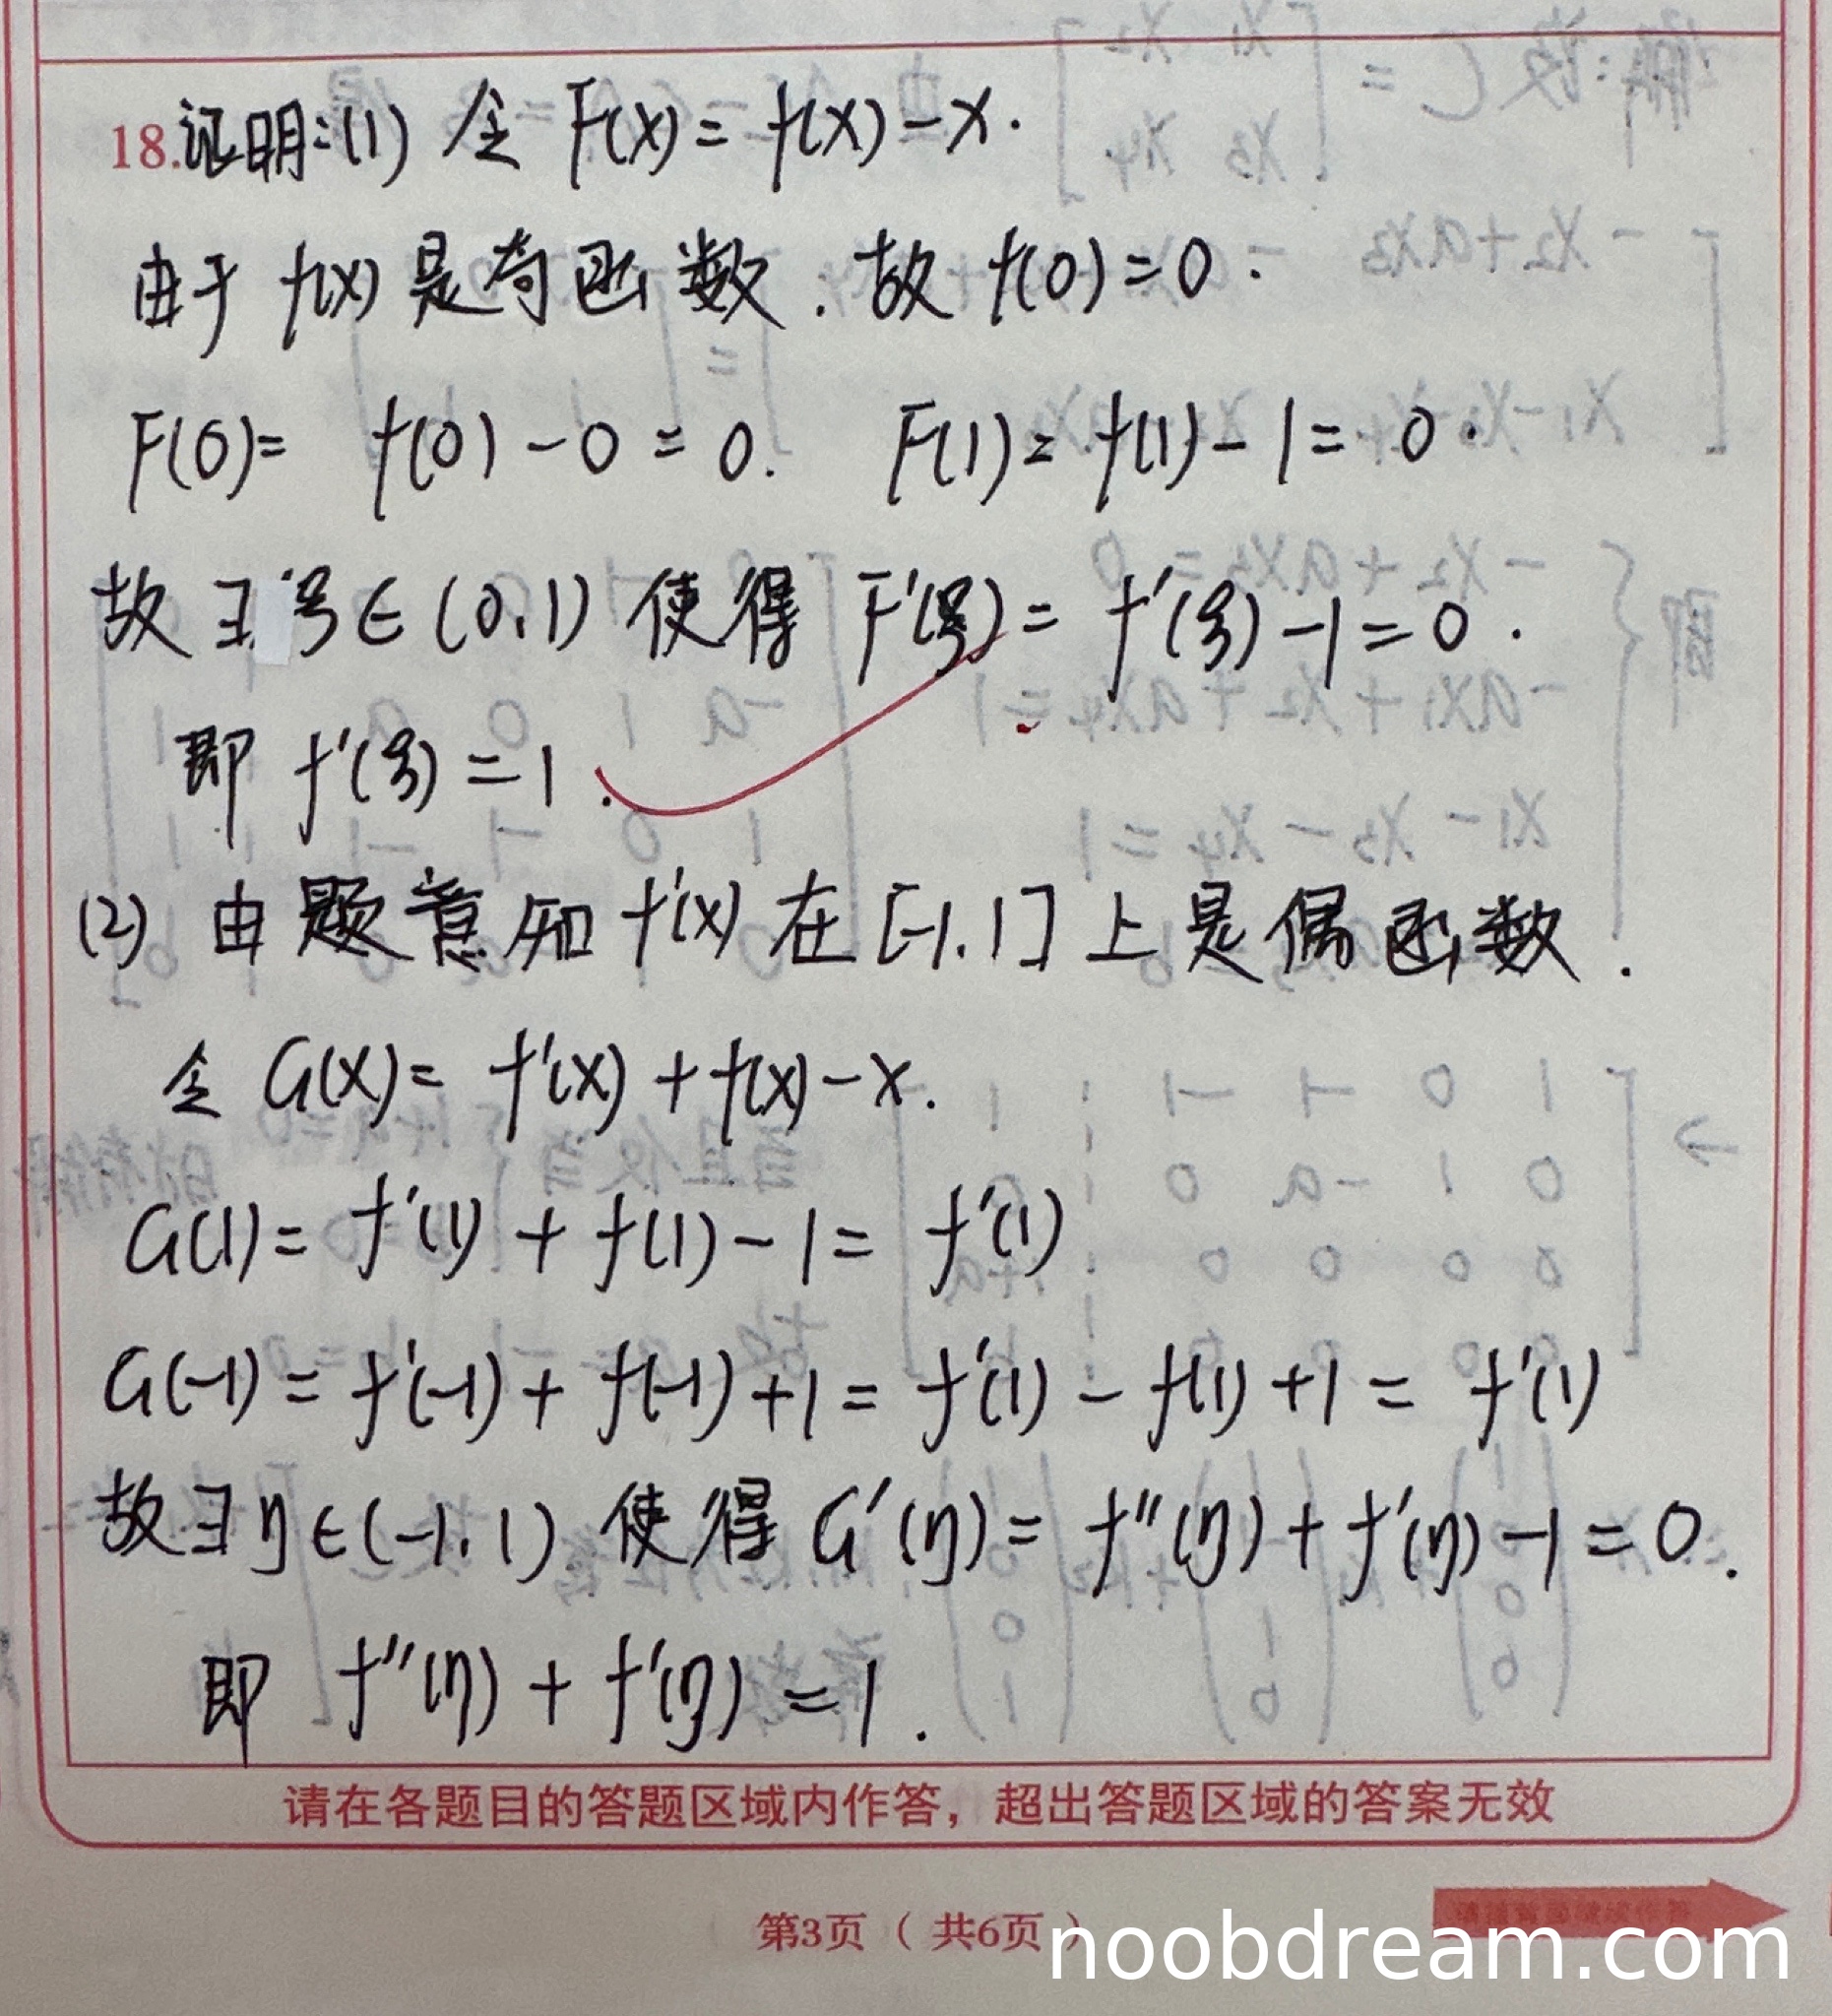 18.证明:(1) 令 F(x) = f(x) - x.
由于 f(x) 是奇函数. 故 f(0) = 0.
F(0) = f(0) - 0 = 0. F(1) = f(1) - 1 = 0.
故 ∃ ξ ∈ (0,1) 使得 F'(ξ) = f'(ξ) - 1 = 0.
即 f'(ξ) = 1.
(2) 由题意知 f'(x) 在 [-1,1] 上是偶函数.
令 G(x) = f'(x) + f(x) - x.
G(1) = f'(1) + f(1) - 1 = f'(1)
G(-1) = f'(-1) + f(-1) + 1 = f'(1) - f(1) + 1 = f'(1)
故 ∃ η ∈ (-1,1) 使得 G'(η) = f''(η) + f'(η) - 1 = 0.
即 f''(η) + f'(η) = 1.
请在各题目的答题区域内作答，超出答题区域的答案无效
第3页（共6页）
noobdream.com